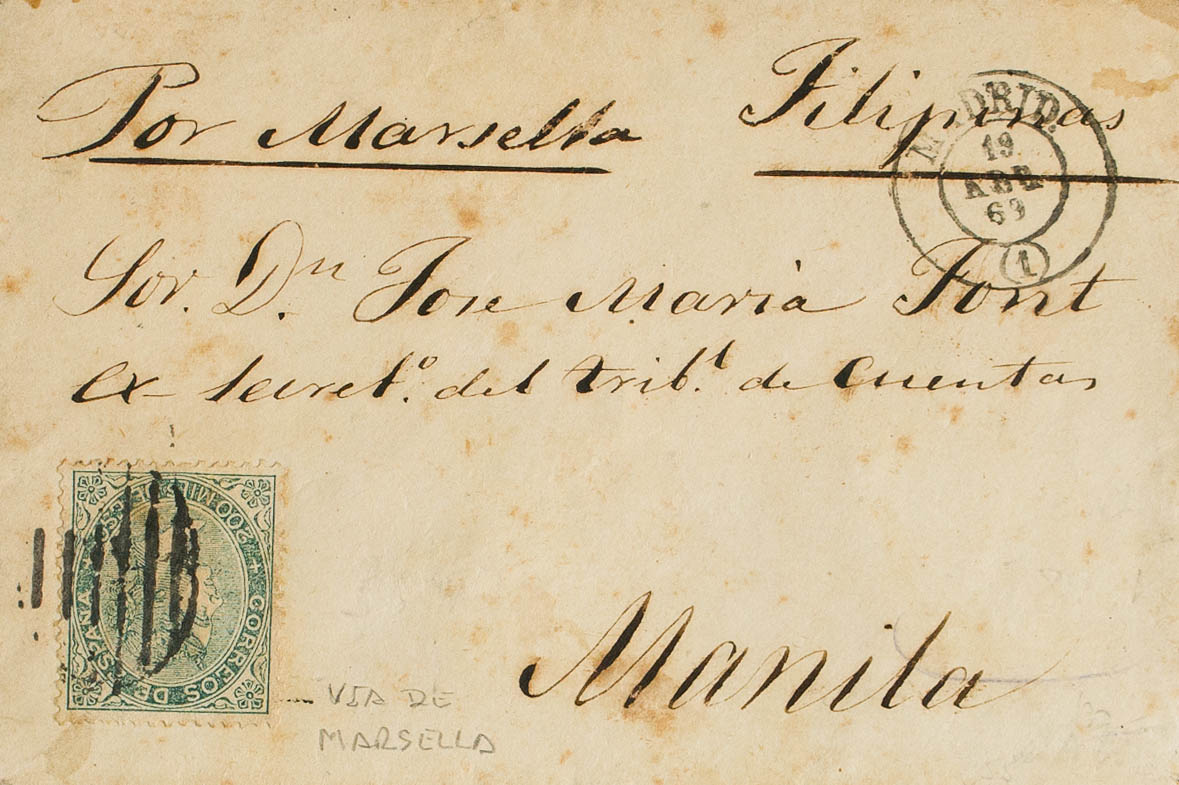 Por Marsella Filipinas
MADRID.
19
ABR
69
1
Sor. Dn Jose Maria Font
ex secreto. del tribl. de Cuentas
200 MIL S DE ESC
CORREOS DE ESPAÑA
Manila
VIA DE
MARSELLA